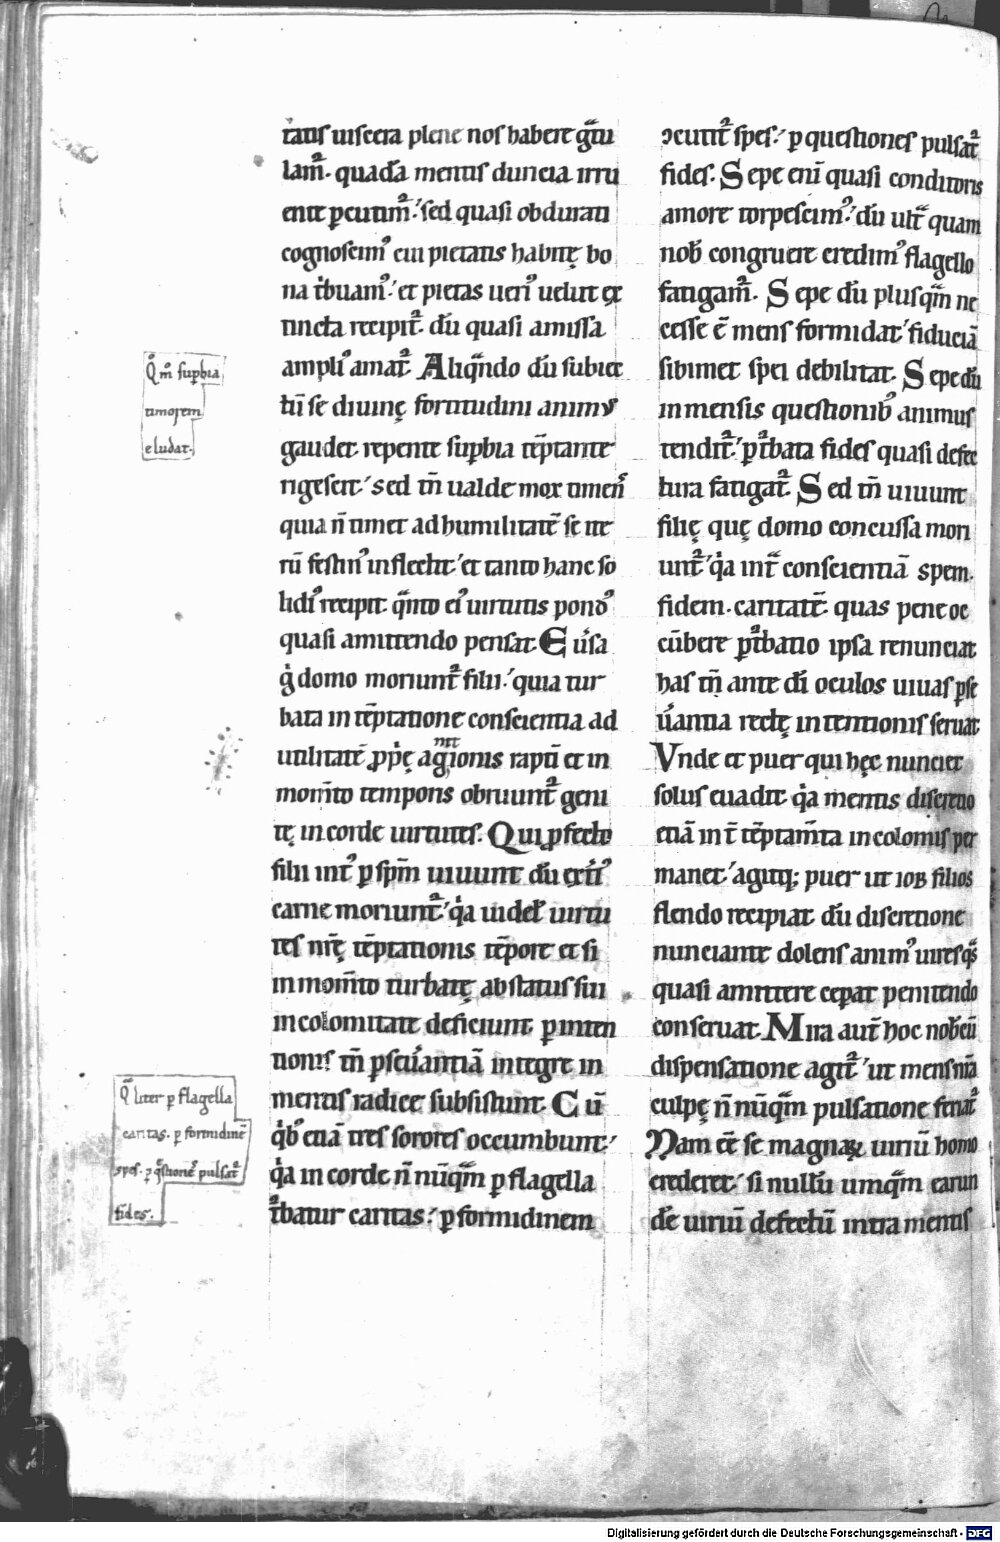 tatis uiscera plene nos habere gͣtu
lam᷑. quadā mentis duricia irru
ente ꝑcutim᷑. sed quasi obdurati
cognoscim᷒ cui pietatis habitę bo
na tͥbuam᷒. et pietas ueri᷒ uelut ex
tincta recipit᷑. dū quasi amissa
ampli᷒ amat᷑. Aliqͣndo dū subiec
tū se diuinę fortitudini animꝰ
gaudet. repente suꝑbia tēptante
rigescit. sed tn̄ ualde mox timens
quia n̄ timet ad humilitatē se ite
rū festin᷒ inflectit. et tanto hanc so
lidi᷒ recipit. qͣnto ei᷒ uirtutis pond᷒
quasi amittendo pensat. Euͥsa
gͦ domo moriunt᷑ filii. quia tur
bata in tēptatione conscientia ad
utilitatē ꝓpͥę agnitionis raptī et in
mom̄to temporis obruunt᷑ geni
tę in corde uirtutes. Qui ꝓfecto
filii int᷒ ꝑ spm̄ uiuunt dū extͥ᷒
carne moriunt᷑. qͥa uidel᷑ uirtu
tes nr̄ę tēptationis tēpore et si
in mom̄to turbatę ab status sui
incolomitate deficiunt. ꝑ inten
tionis tn̄ ꝑseuͥantiā integre in
mentis radice subsistunt. Cū
qͥb᷒ etiā tres sorores occumbunt.
qͥa in corde n̄ nūqͣm ꝑ flagella
t᷑batur caritas. ꝑ formidinem
ꝯcutit᷑ spes. ꝑ questiones pulsat᷑
fides. Sepe eni̅ quasi conditoris
amore torpescim᷒. dū ultͣ quam
nob̄ congruere credim᷒ flagello
fatigam᷑. Sepe dū plusqͣm ne
cesse ē mens formidat. fiduciā
sibimet spei debilitat. Sepe dū
inmensis questionib᷒ animus
tendit᷑. ꝑt᷑bata fides quasi defec
tura fatigat᷑. Sed tn̄ uiuunt
filię quę domo concussa mori
unt᷑. qͥa intͣ conscientiā spem.
fidem. caritatē. quas pene oc
cūbere ꝑt᷑batio ipsa renunciat
has tn̄ ante dī oculos uiuas ꝑse
uͥantia rectę intentionis seruat.
Vnde et puer qui hęc nunciet
solus euadit. qͥa mentis discretio
etiā int̄ tēptam̄ta incolomis per
manet. agitq; puer ut iob filios
flendo recipiat. dū discretione
nunciante dolens anim᷒ uires qͣs
quasi amittere ceperat penitendo
conseruat. Mira aut̄ hoc nob̄cū
dispensatione agit᷑. ut mens nr̄a
culpę n̄ nūqͣm pulsatione feriat᷑.
Nam ēē se magnaꝝ uiriū homo
crederet. si nullū umqͣm earun
dē uiriū defectū intra mentis
Qͦm᷒ suꝑbia
timorem
eludat.
Qͣliter ꝑ flagella
caritas. ꝑ formidinē
spes. ꝑ qͣstiones pulsat᷑
fides.
Digitalisierung gefördert durch die Deutsche Forschungsgemeinschaft - DFG